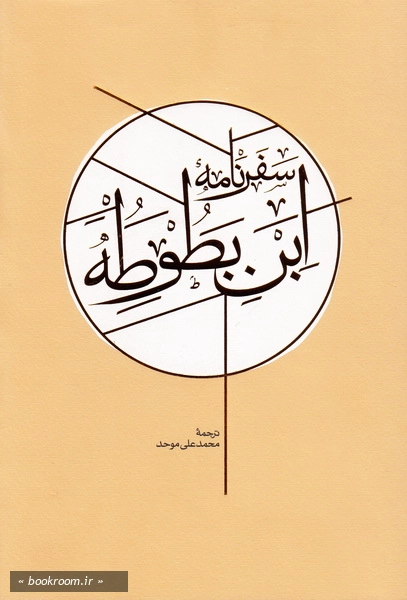 سفرنامهٔ
ابن بطوطه
ترجمهٔ
محمدعلی موحد
« bookroom.ir »